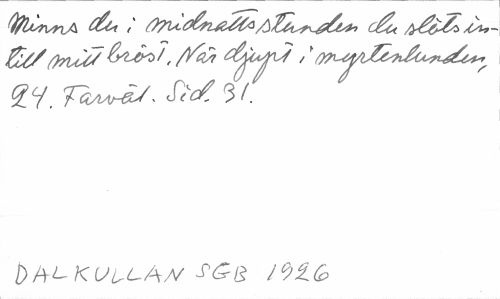 Minns du i midnattsstunden du slöts in-
till mitt bröst. När djupt i myrtenlunden,
24. Farväl. Sid. 31.
DALKULLAN SGB 1926